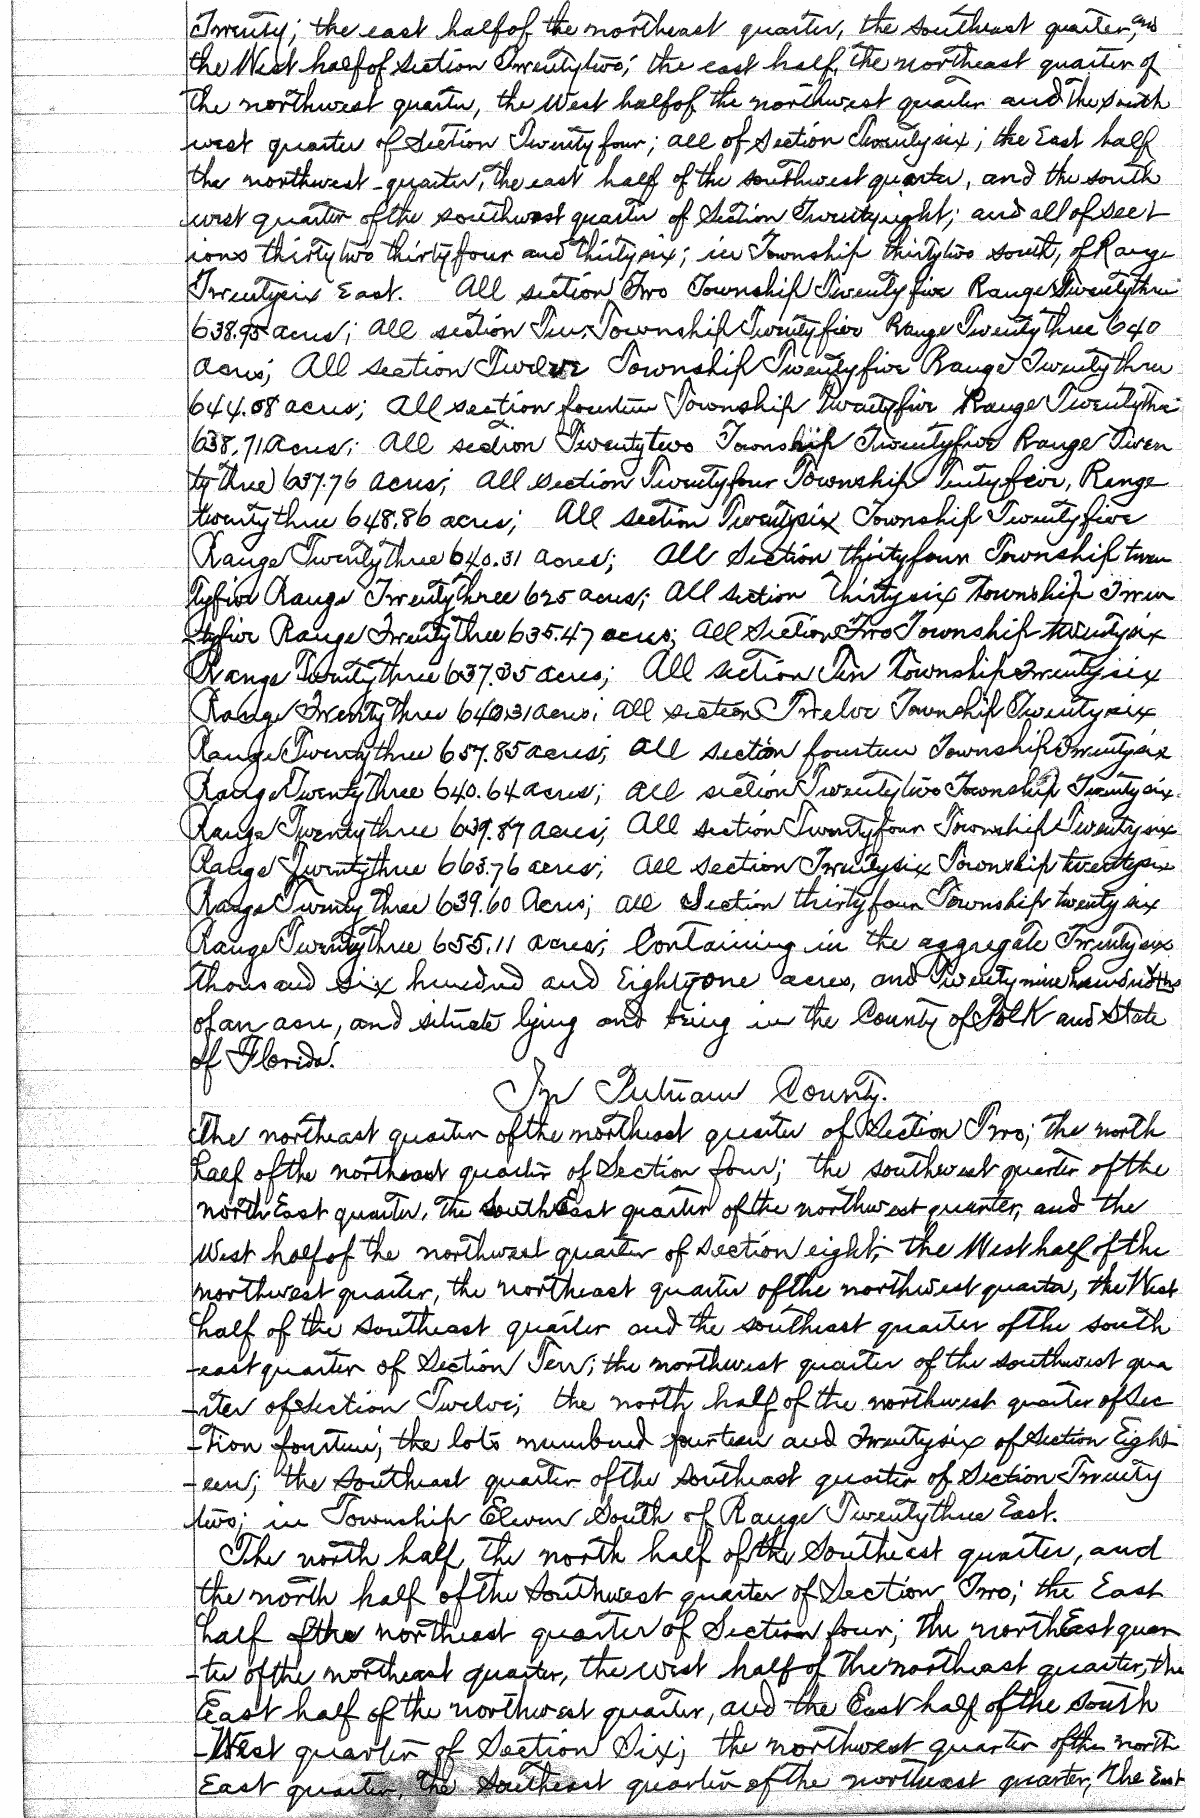 Twenty; the east half of the northeast quarter, the southeast quarter, and
the West half of section Twentytwo; the east half, the northeast quarter of
the northwest quarter, the West half of the northwest quarter and the south
west quarter of Section Twenty four; all of Section Twenty six; the East half
the northwest quarter, the east half of the southwest quarter, and the south
west quarter of the southwest quarter of Section Twentyeight; and all of sect
ions thirty two thirty four and thirty six; in Township thirty two south, of Range
Twentysix East. All section Two Township Twenty five Range Twentythree
638.95 acres; All section Ten Township Twenty five Range Twenty three 640
acres; All section Twelve Township Twenty five Range Twenty three
644.08 acres; All section fourteen Township Twenty five Range Twenty three
638.71 acres; All section Twenty two Township Twentyfive Range Twen
ty three 637.76 acres; All section Twenty four Township Tentyfive, Range
twenty three 648.86 acres; All section Twentysix Township Twenty five
Range Twenty three 640.31 acres; All Section thirtyfour Township twen
tyfive Range Twenty three 625 acres; All section Thirty six Township Twen
tyfive Range Twenty three 635.47 acres; All Section Two Township twenty six
Range Twenty three 637.35 acres; All section Ten Township Twenty six
Range Twenty three 640.31 acres; all section Twelve Township Twenty six
Range Twenty three 657.85 acres; all section fourteen Township Twenty six
Range Twenty three 640.64 acres; all section Twenty two Township Twenty six
Range Twenty three 639.87 acres; All section Twenty four Township Twenty six
Range Twenty three 663.76 acres; all section Twenty six Township twenty six
Range Twenty three 639.60 Acres; all Section thirty four Township twenty six
Range Twenty three 655.11 acres; Containing in the aggregate Twenty six
thousand six hundred and Eighty one acres, and Twenty nine hundredths
of an acre, and situate lying and being in the County of Polk and State
of Florida.
In Putnam County.
The northeast quarter of the northeast quarter of Section Two; the north
half of the northeast quarter of Section four; the southwest quarter of the
north East quarter, the South East quarter of the northwest quarter, and the
West half of the northwest quarter of Section eight; the West half of the
northwest quarter, the northeast quarter of the northwest quarter, the West
half of the southeast quarter and the southeast quarter of the south
-east quarter of Section Ten; the northwest quarter of the southwest qua
-rter of Section Twelve; the north half of the northwest quarter of Sec
-tion fourteen; the lots numbered fourteen and Twenty six of Section Eight
-een; the southeast quarter of the southeast quarter of Section Twenty
two; in Township Eleven South of Range Twenty three East.
The north half, the north half of the Southeast quarter, and
the north half of the Southwest quarter of Section Two; the East
half of the northeast quarter of Section four; the northEast quar
-ter of the northeast quarter, the west half of the northeast quarter, the
East half of the northwest quarter, and the East half of the South
-West quarter of Section Six; the northwest quarter of the north
East quarter, the Southeast quarter of the northeast quarter, the East